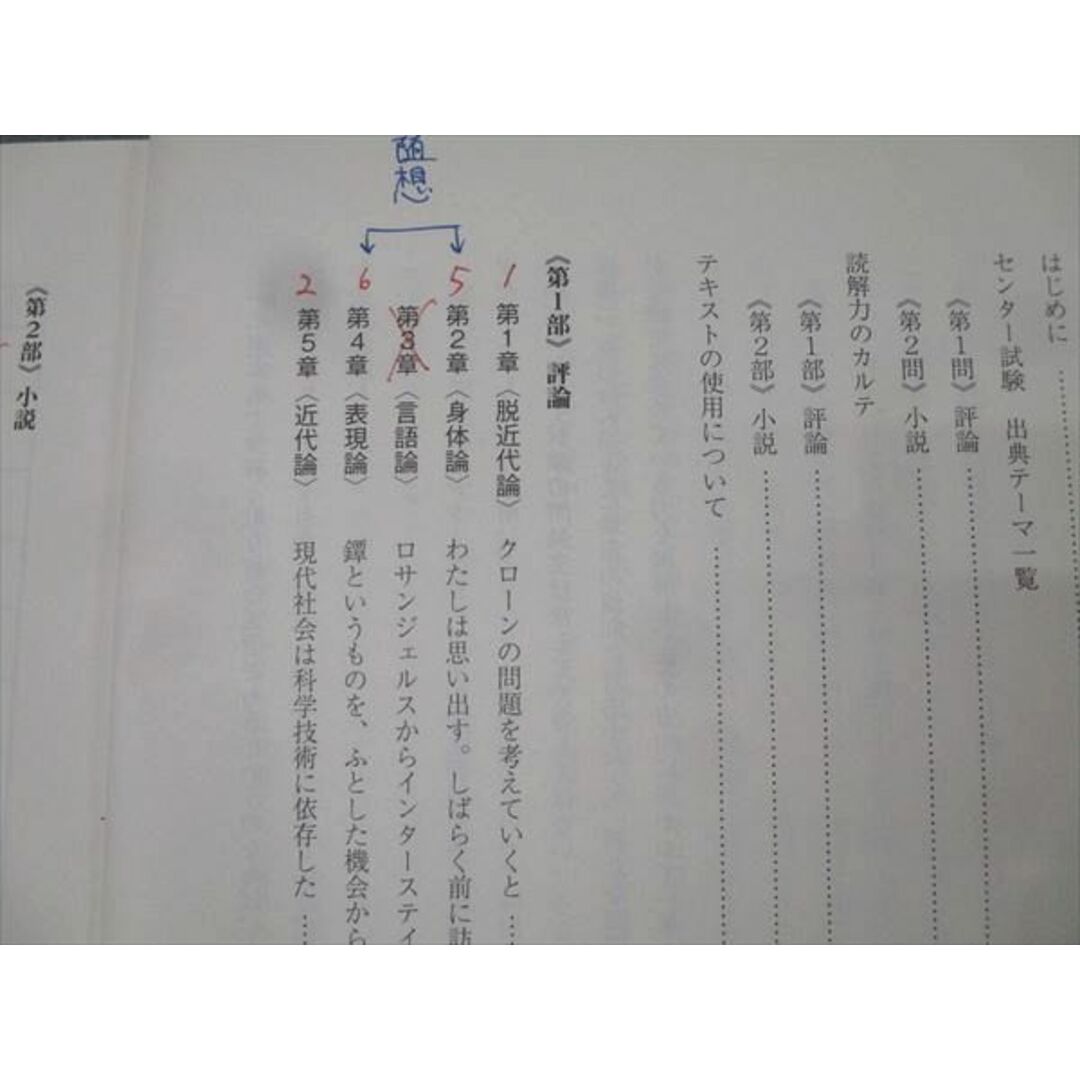 はじめに
センター試験 出典テーマ一覧
《第1問》評論
《第2問》小説
読解力のカルテ
《第1部》評論
《第2部》小説
テキストの使用について
《第1部》評論
1 第1章〈脱近代論〉 クローンの問題を考えていくと
随想
5 第2章〈身体論〉 わたしは思い出す。しばらく前に訪
第3章〈言語論〉 ロサンジェルスからインターステイ
6 第4章〈表現論〉 鐔というものを、ふとした機会から
2 第5章〈近代論〉 現代社会は科学技術に依存した
《第2部》小説